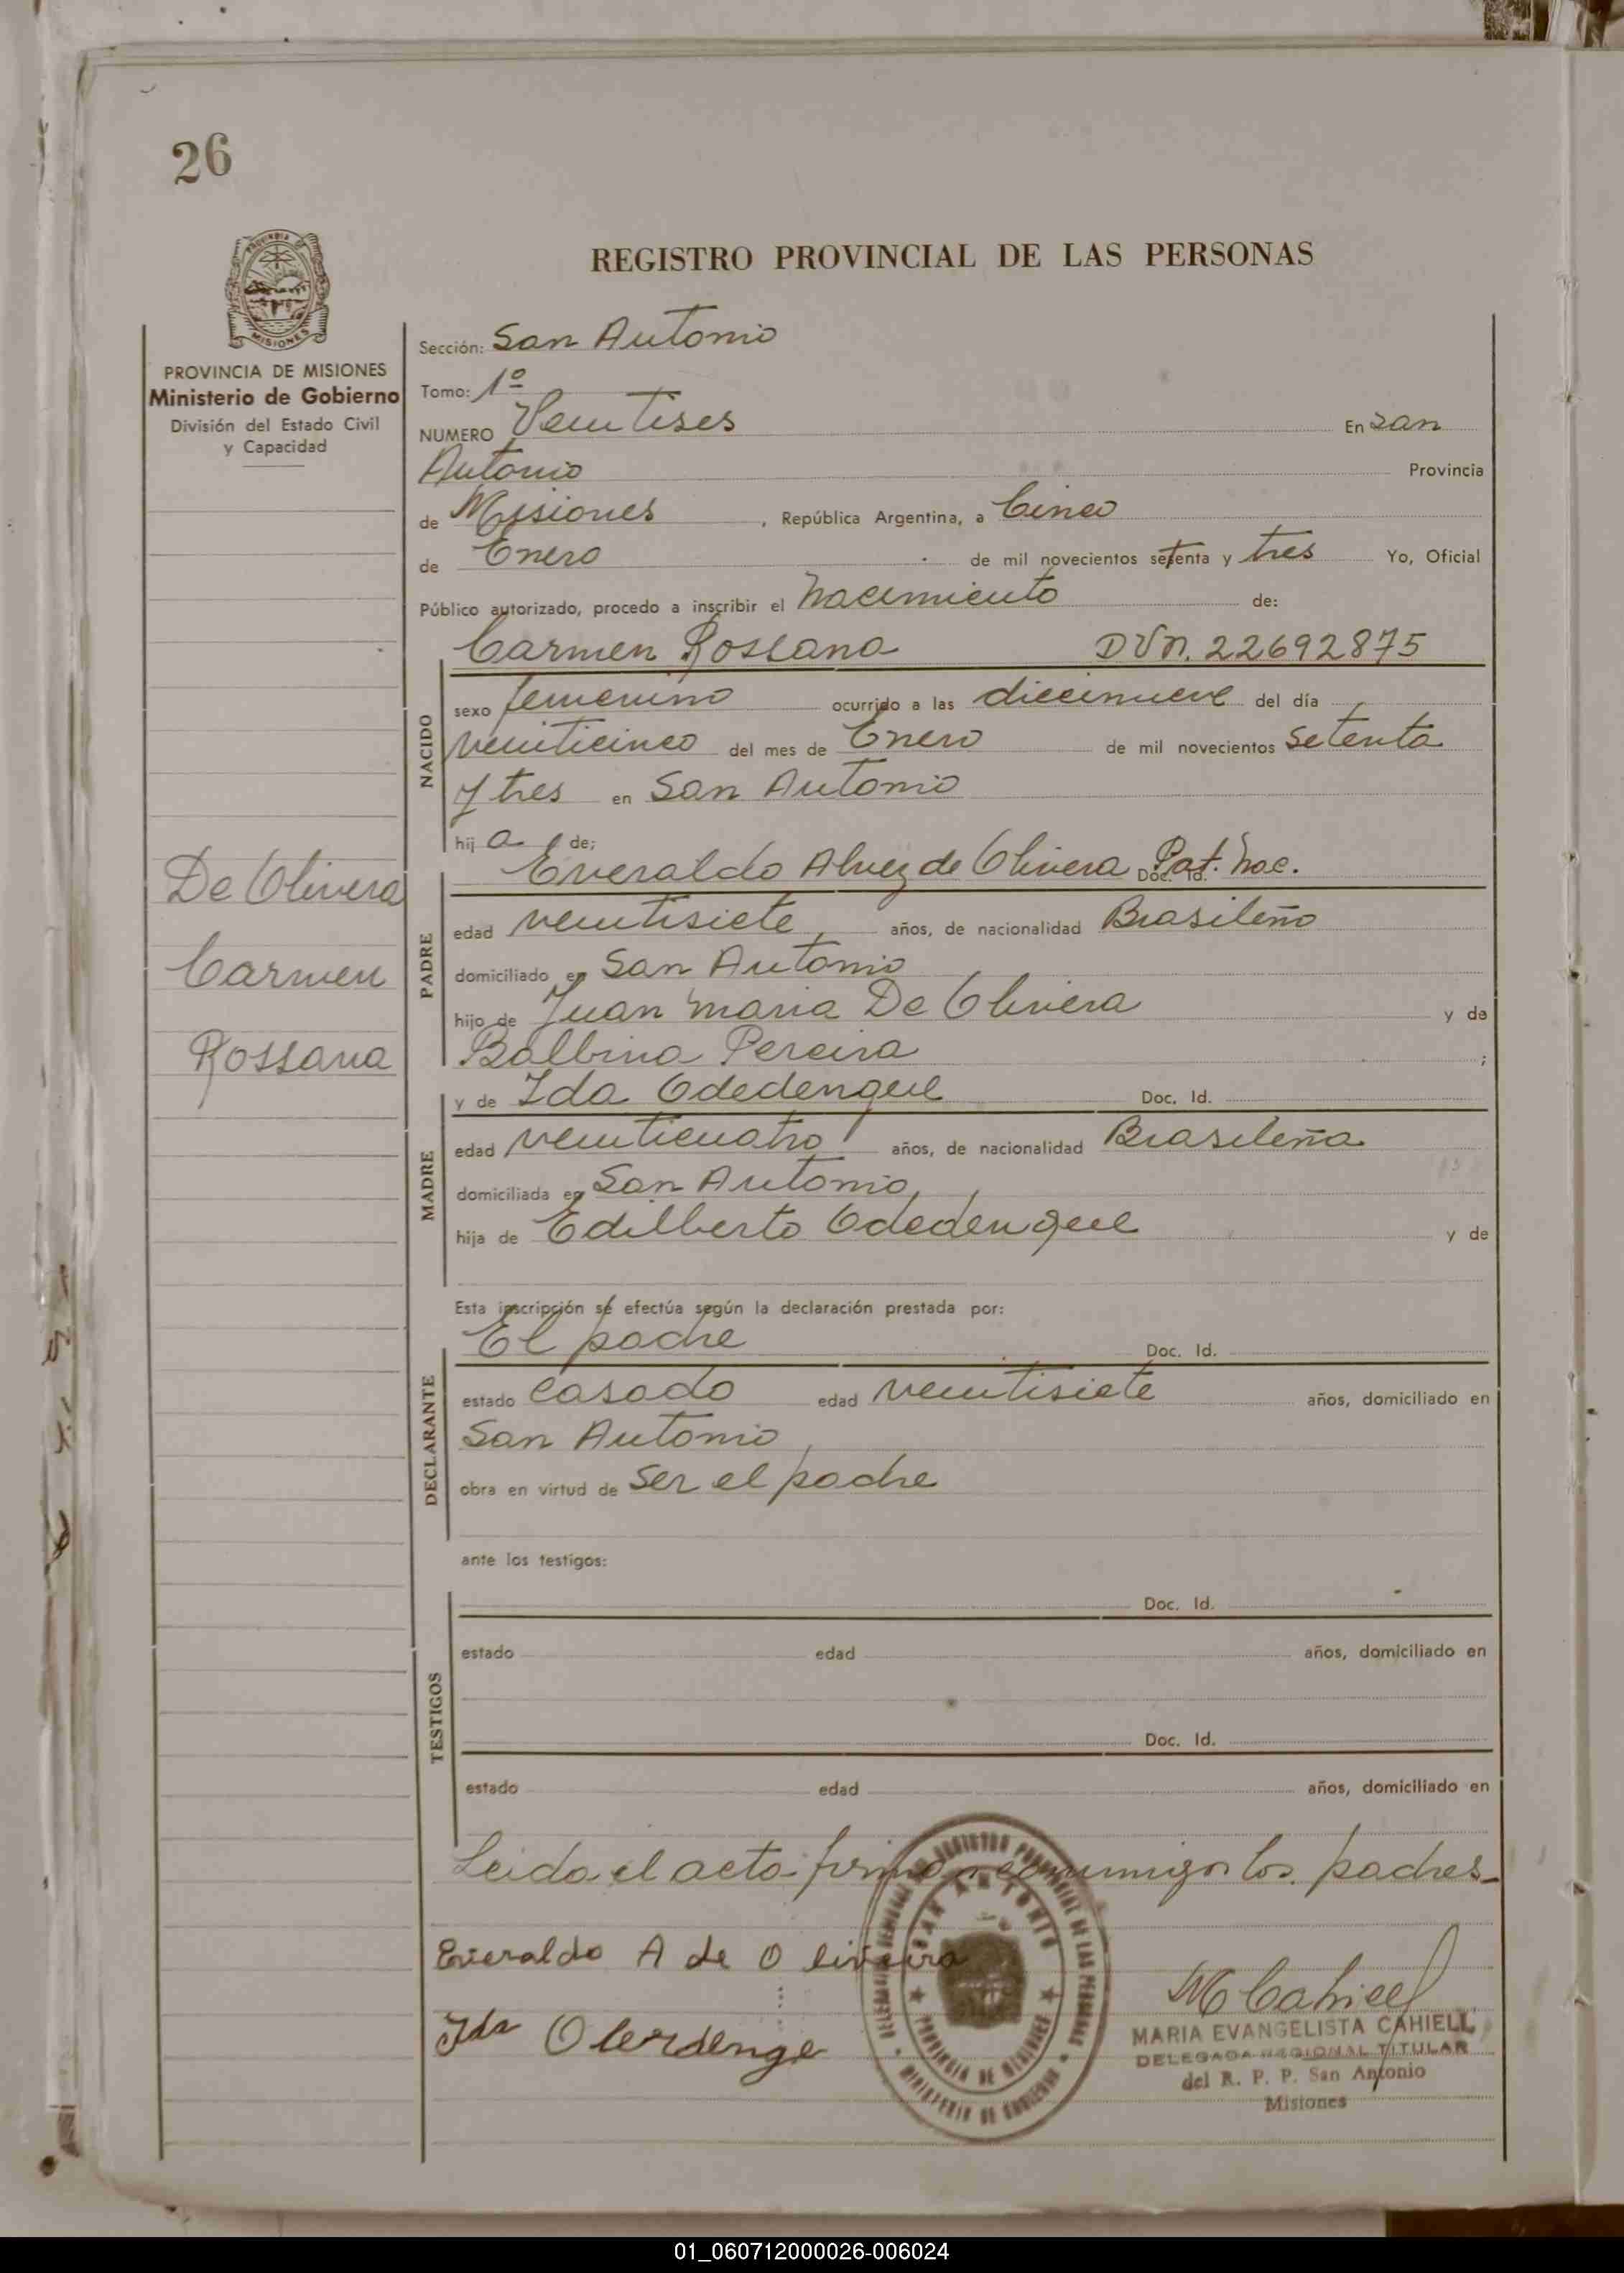 26
REGISTRO PROVINCIAL DE LAS PERSONAS
PROVINCIA DE MISIONES
Ministerio de Gobierno
División del Estado Civil
y Capacidad
Sección: San Antonio
Tomo: 1º
NUMERO Veintises En San
Antonio Provincia
de Misiones, República Argentina, a Cinco
de Enero de mil novecientos setenta y tres Yo, Oficial
Público autorizado, procedo a inscribir el nacimiento de:
Carmen Rossana DUN. 22692875
NACIDO
sexo femenino ocurrido a las diecinueve del día
veinticinco del mes de Enero de mil novecientos setenta
y tres en San Antonio
hija de;
De Olivera
Carmen
Rossana
PADRE
Everaldo Alvez de Olivera Doc. Id. Pat. Nac.
edad veintisiete años, de nacionalidad Brasileño
domiciliado en San Antonio
hijo de Juan Maria De Olivera y de
Balbina Pereira;
MADRE
y de Ida Odedengue Doc. Id.
edad veinticuatro años, de nacionalidad Brasileña
domiciliada en San Antonio
hija de Edilberto Odedengue y de
Esta inscripción se efectúa según la declaración prestada por:
DECLARANTE
El padre Doc. Id.
estado casado edad veintisiete años, domiciliado en
San Antonio
obra en virtud de ser el padre
ante los testigos:
TESTIGOS
Doc. Id.
estado edad años, domiciliado en
Doc. Id.
estado edad años, domiciliado en
Leida el acta firman conmigo los padres
Everaldo A de Oliveira
Ida Olerdenge
SAN ANTONIO
PROVINCIA DE MISIONES
MINISTERIO DE GOBIERNO
M Cahiell
MARIA EVANGELISTA CAHIELL
DELEGADA REGIONAL TITULAR
del R. P. P. San Antonio
Misiones
01_060712000026-006024